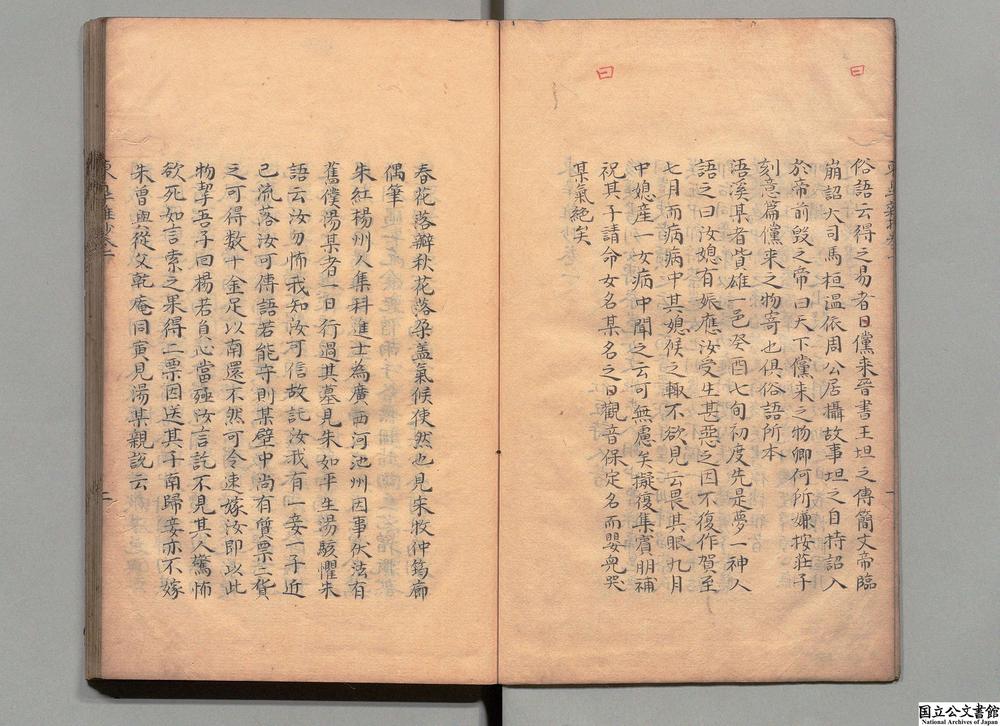 俗語云得之易者曰儻来晉書王坦之傳簡文帝臨
崩詔大司馬桓温依周公居攝故事坦之自持詔入
於帝前毀之帝曰天下儻来之物卿何所嫌按莊子
刻意篇儻来之物寄也俱俗語所本
語溪某者貲雄一邑癸酉七旬初度先是夢一神人
語之曰汝媳有娠應汝受生甚惡之因不復作賀至
七月而病病中其媳候之輙不欲見云畏其眼九月
中媳産一女病中聞之云可無慮矣擬復集賓朋補
祝其子請命女名某名之曰觀音保定名而嬰兒哭
某氣絶矣
春花落瓣秋花落朶盖氣候使然也見宋牧仲筠廊
偶筆
朱紅楊州人集科進士為廣西河池州因事伏法有
舊僕湯某者一日行過其墓見朱如平生湯駭懼朱
語云汝勿怖我知汝可信故託汝我有一妾一子近
已流落汝可傳語若能守則某壁中尚有質票二貨
之可得数十金足以南還不然可令速嫁汝即以此
物挈吾子回楊若負心當殛汝言訖不見其人驚怖
欲死如言索之果得二票因送其子南歸妾亦不嫁
朱曾與從父乾庵同寅見湯某親説云
国立公文書館
National Archives of Japan